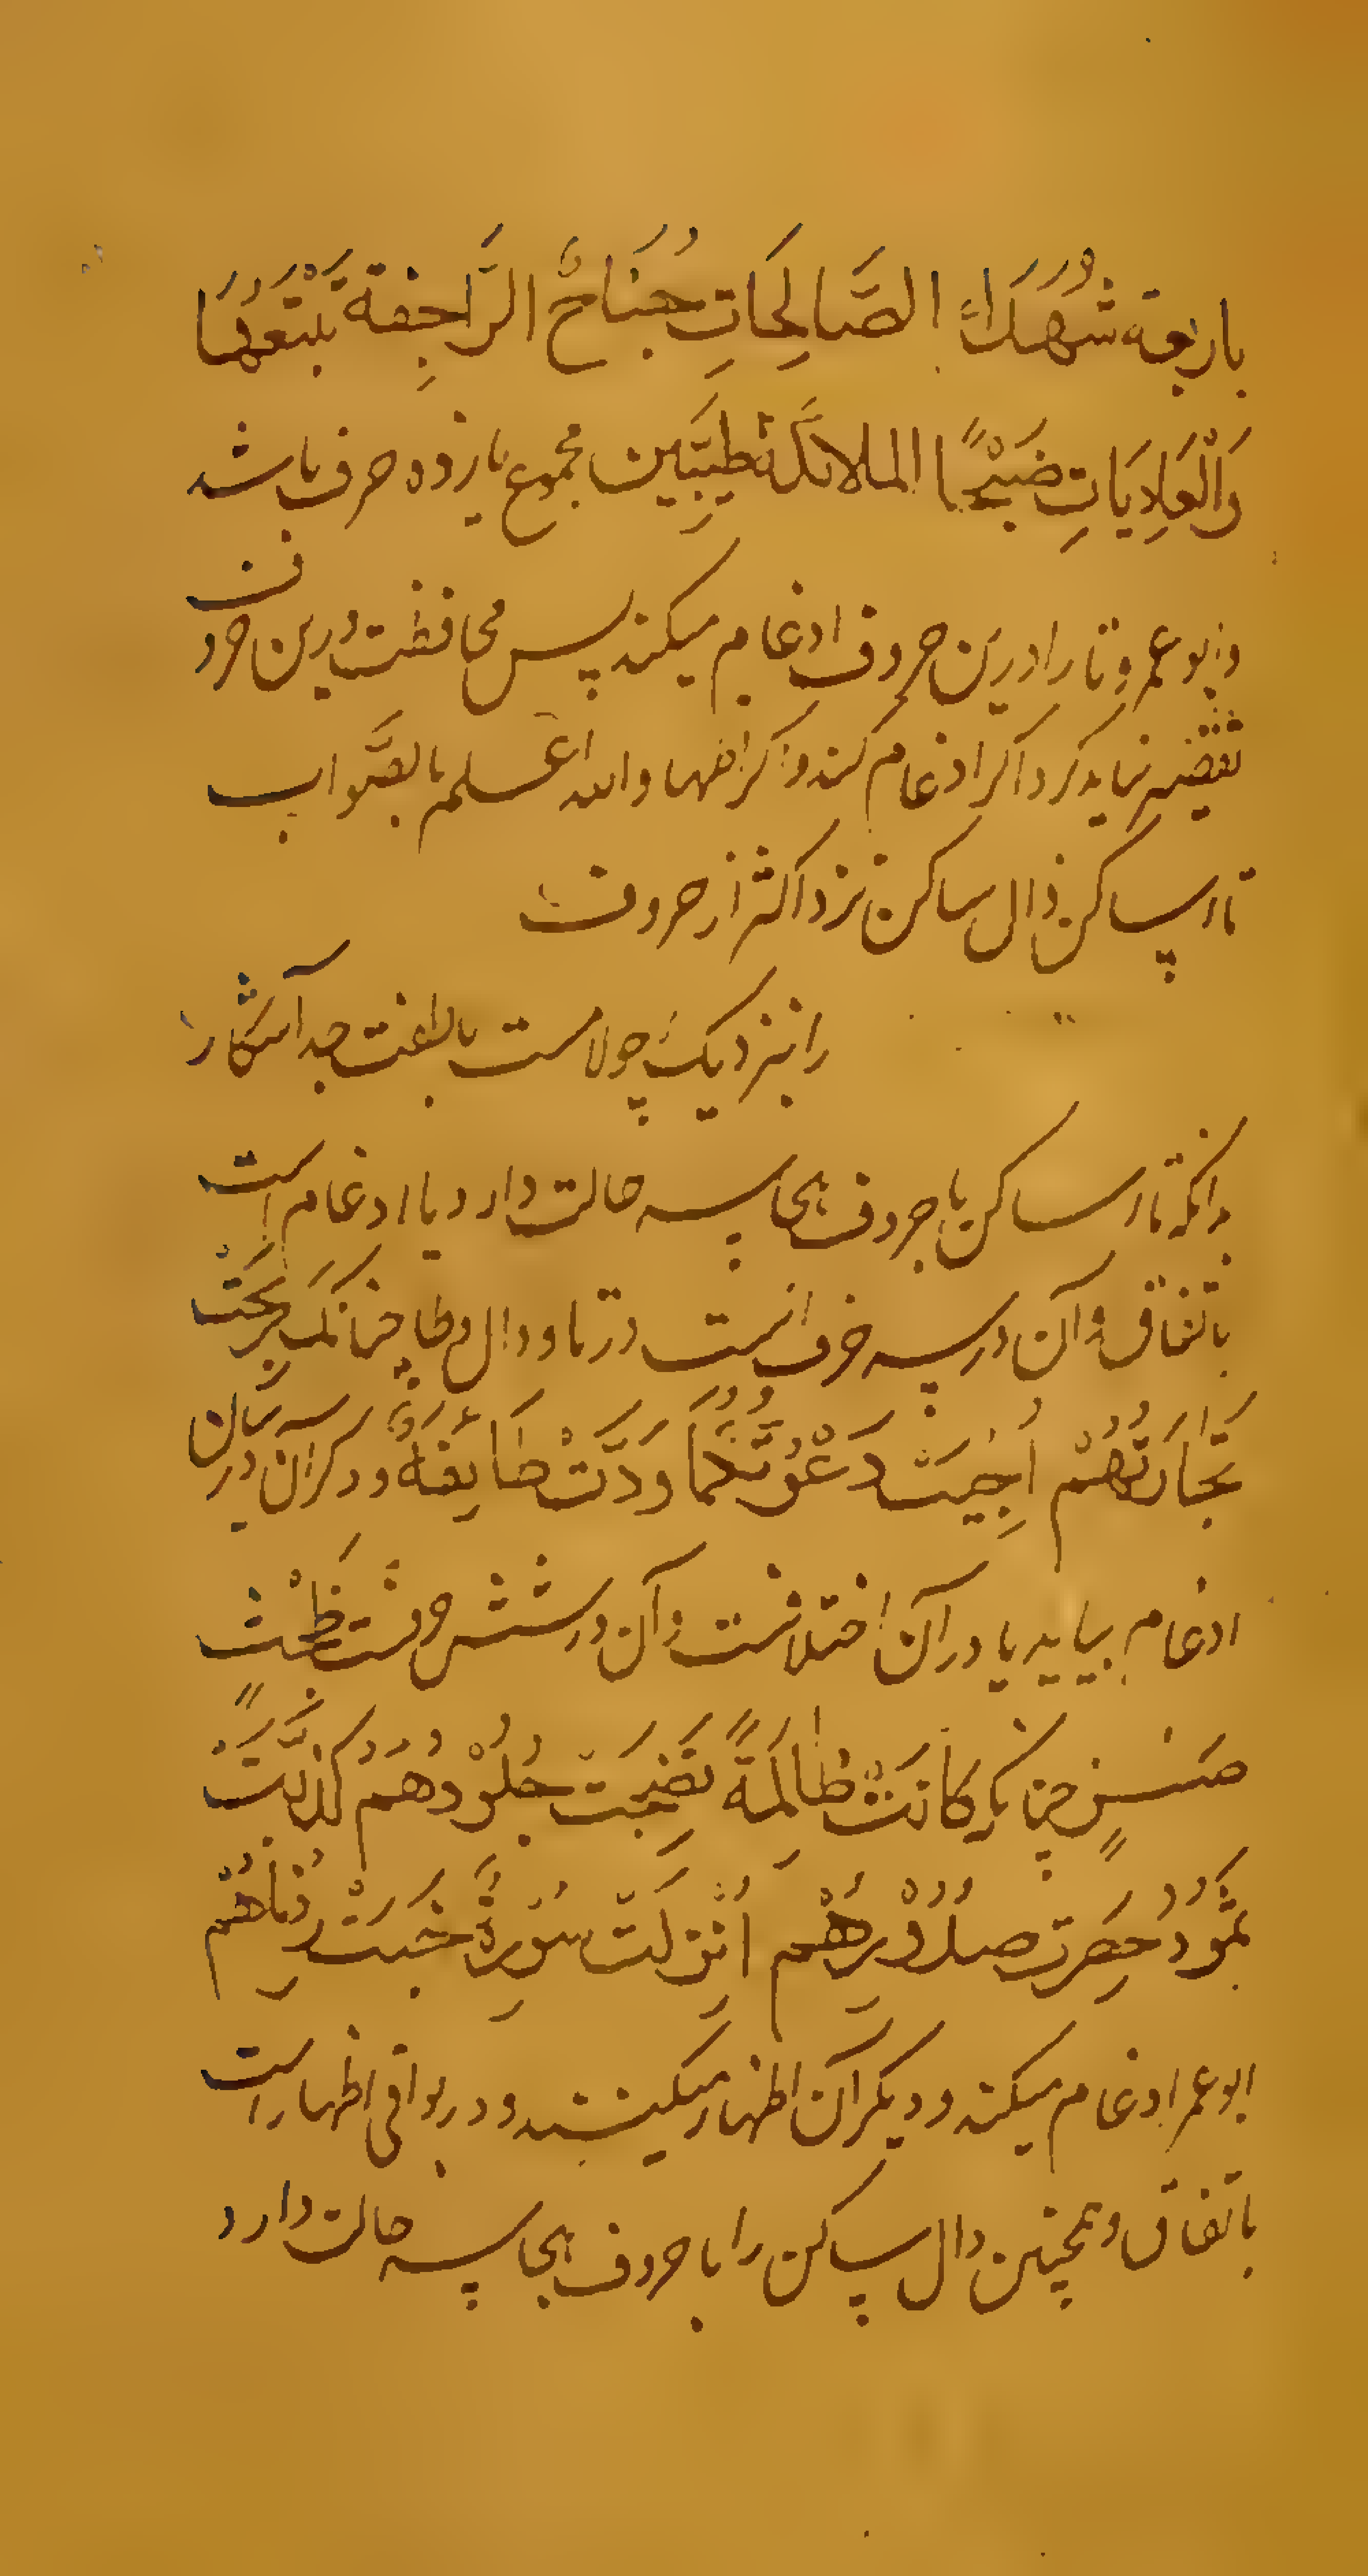 باربعة شُهَدَاءَ الصَّالِحَاتِ جُنَاحٌ الرَّاجِفَةُ تَتْبَعُهَا
وَالْعَادِيَاتِ ضَبْحًا الملائکَةُ طَيِّبِّين مجموع یازده حرف باشد
وابو عمرو تا را درین حروف ادغام میکند پس محافظت درین حروف
تقصیر نباید کرد اکر ادغام کند و اکر اظهار والله اعلم بالصَّواب
تا ساکن ذال ساکن نزد اکثر از حروف
را بنزدیک چو لامست با لغت جد آشکارا
بدانکه تا ساکن با حروف هجا سه حالت دارد یا ادغام است
باتفاق و آن در سه حرف است در تا و دال و طا چنانک رَبِحَتْ
تِجَارَتُهُمْ اُجِيبَتْ دَعْوَتُكُمَا وَدَّتْ طَائِفَةٌ و دکر آن درین
ادغام بیاید یا در آن اختلافست و آن در شش حرفست
چنانکه كَانَتْ ظَالِمَةً نَضِجَتْ جُلُوْدُهُمْ كَذَّبَتْ
ثَمُوْدُ حَصِرَت صُدُوْرُهُم اُنْزِلَتْ سُوْرَةٌ خَبَتْ زِدْنَاهُمْ
ابو عمر ادغام میکند و دیکر آن اظهار میکنند و در بواقی اظهار است
باتفاق و همچنین دال ساکن را با حروف هجا سه حالت دارد